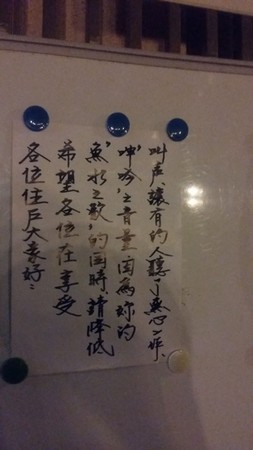 各位住戶大家好：
希望各位在享受
"魚水之歡"的同時,請降低
"呻吟"之音量因為妳的
叫声,讓有的人聽了無心工作、